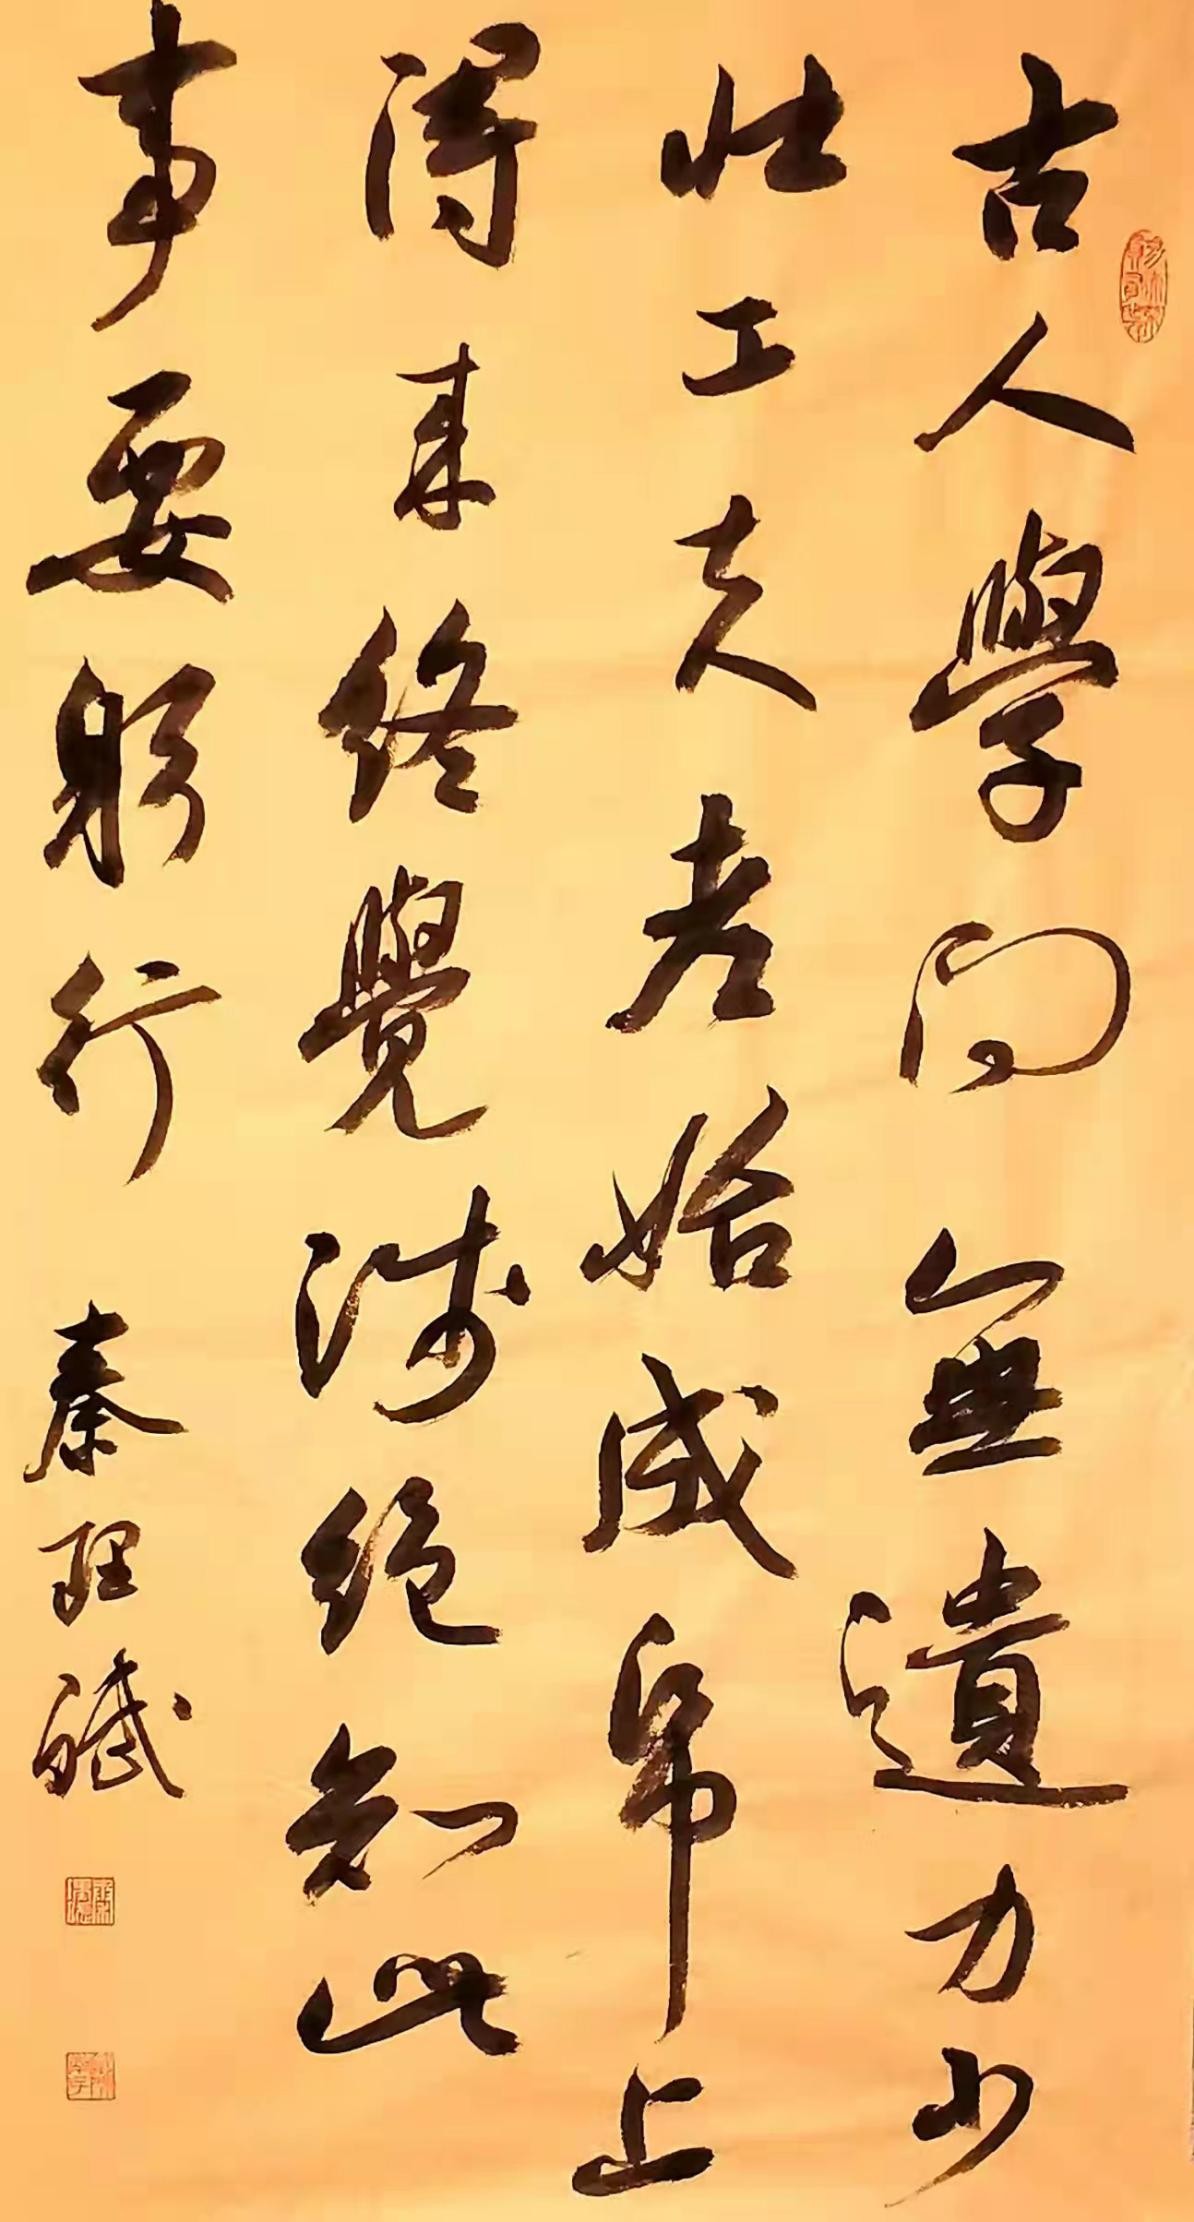 古人學問無遺力少
壯工夫老始成帋上
得来終覺淺絕知此
事要躬行 秦